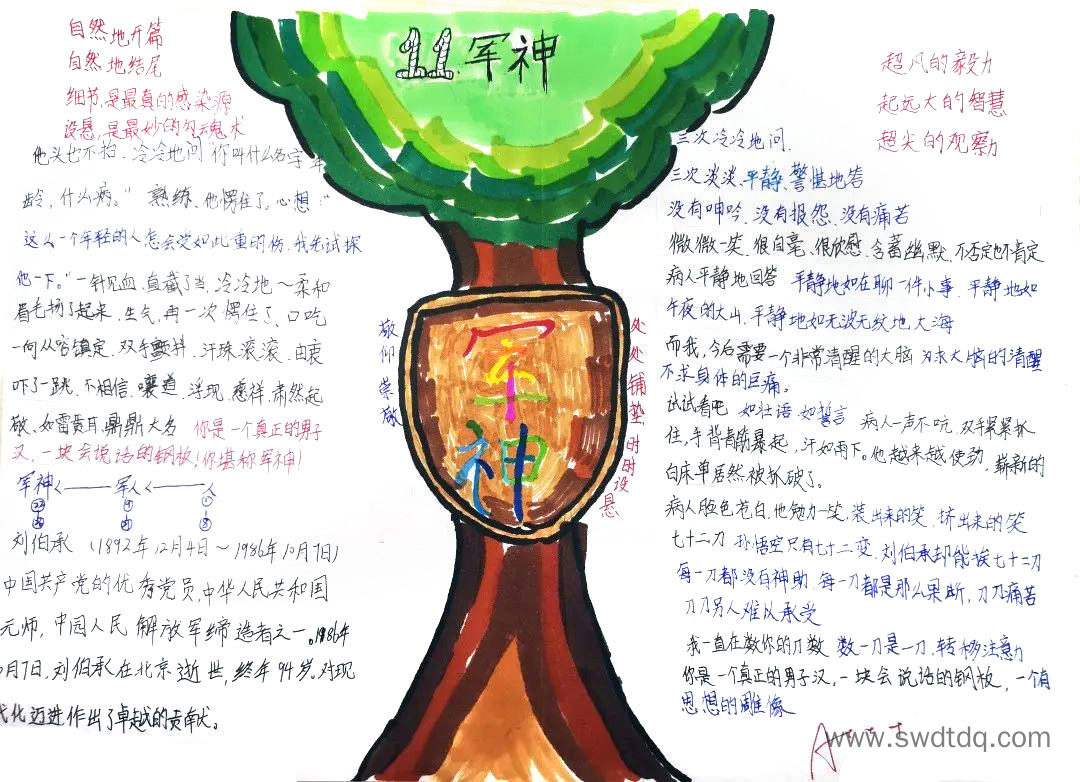 11 军神
自然地开篇
自然地结尾
细节,是最真的感染源
设悬,是最妙的勾魂术
他头也不抬.冷冷地问"你叫什么名字年
龄,什么病。" 熟练、他愣住了。心想:"
这么一个年轻的人怎会受如此重的伤,我先试探
他一下。"一针见血、直截了当、冷冷地~柔和
眉毛扬了起来、生气,再一次愣住了、口吃
一向从容镇定,双手颤抖、汗珠滚滚、由衷
吓了一跳、不相信、嚷道、浮现、慈祥、肃然起
敬、如雷贯耳、鼎鼎大名 你是一个真正的男子
汉,一块会说话的钢板!你堪称军神!
军神 军人 人
刘伯承 (1892年12月4日~1986年10月7日)
中国共产党的优秀党员,中华人民共和国
元师,中国人民解放军缔造者之一。1986年
10月7日,刘伯承在北京逝世,终年94岁。对现
代化迈进作出了卓越的贡献。
敬仰 崇敬
军神
处处铺垫,时时设悬
超凡的毅力
起远大的智慧
超尖的观察力
三次冷冷地问.
三次淡淡、平静、警惕地答
没有呻吟、没有报怨、没有痛苦
微微一笑、很自毫、很欣慰、含蓄幽默、不否定也不肯定
病人平静地回答 平静地如在聊一件小事、平静地如
午夜的大山、平静地如无波无纹地大海
而我,今后需要一个非常清醒的大脑 只求大脑的清醒
不求身体的巨痛。
试试看吧 如壮语 如誓言 病人一声不吭,双手紧紧抓
住,手背青筋暴起,汗如雨下。他越来越使劲,崭新的
白床单居然被抓破了。
病人脸色苍白,他勉力一笑,装出来的笑、挤出来的笑
七十二刀 孙悟空只有七十二变,刘伯承却能挨七十二刀
每一刀都没有神助、每一刀都是那么果断,刀刀痛苦
刀刀另人难以承受
我一直在数你的刀数 数一刀是一刀,转移注意力
你是一个真正的男子汉,一块会说话的钢板,一个有
思想的雕像
www.swdtdq.com